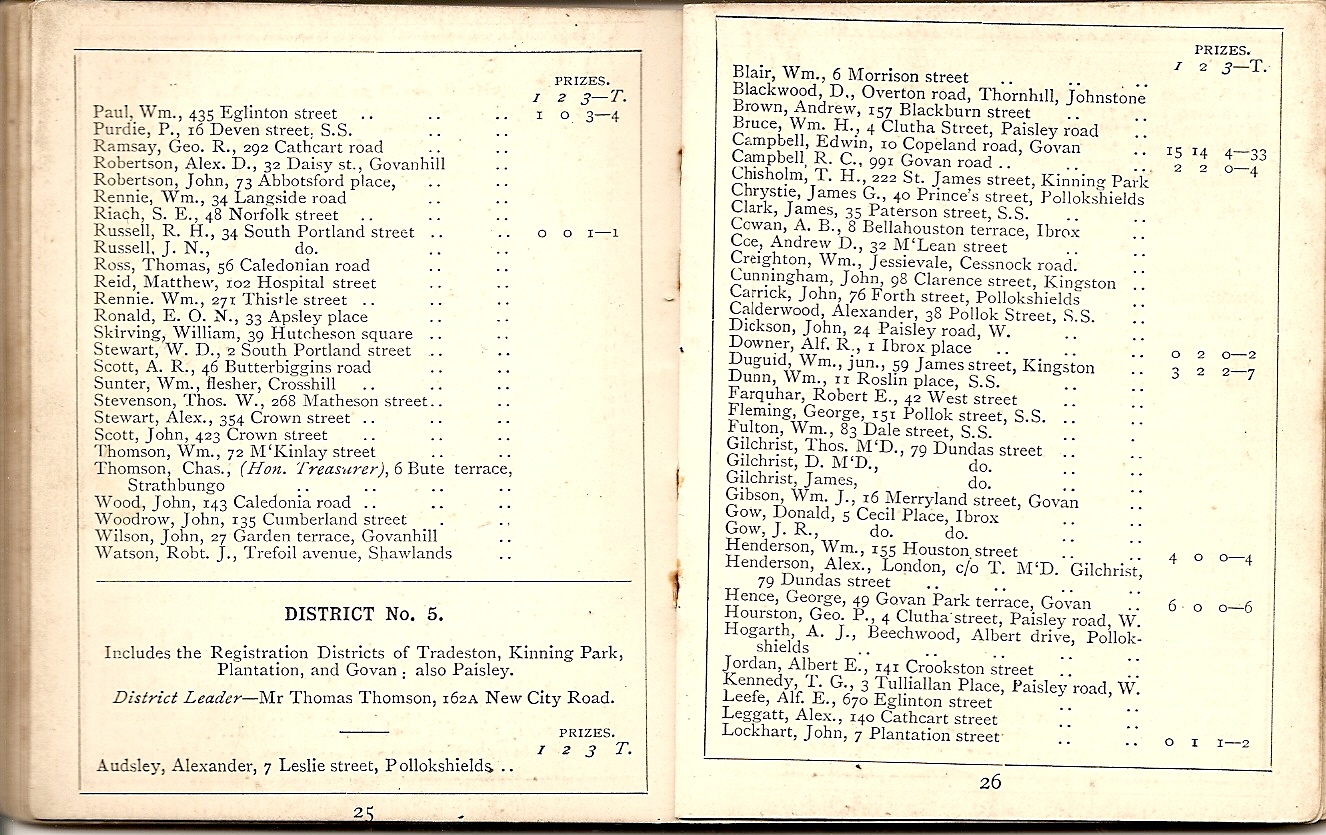 PRIZES.
1 2 3—T.
Paul, Wm., 435 Eglinton street .. .. .. 1 0 3—4
Purdie, P., 16 Deven street, S.S. .. ..
Ramsay, Geo. R., 292 Cathcart road .. ..
Robertson, Alex. D., 32 Daisy st., Govanhill ..
Robertson, John, 73 Abbotsford place, .. ..
Rennie, Wm., 34 Langside road .. ..
Riach, S. E., 48 Norfolk street .. .. ..
Russell, R. H., 34 South Portland street .. .. 0 0 1—1
Russell, J. N., do. .. ..
Ross, Thomas, 56 Caledonian road .. ..
Reid, Matthew, 102 Hospital street .. ..
Rennie. Wm., 271 Thistle street .. .. ..
Ronald, E. O. N., 33 Apsley place .. ..
Skirving, William, 39 Hutcheson square .. ..
Stewart, W. D., 2 South Portland street .. ..
Scott, A. R., 46 Butterbiggins road .. ..
Sunter, Wm., flesher, Crosshill .. .. ..
Stevenson, Thos. W., 268 Matheson street.. ..
Stewart, Alex., 354 Crown street .. .. ..
Scott, John, 423 Crown street .. .. ..
Thomson, Wm., 72 M'Kinlay street .. ..
Thomson, Chas., (Hon. Treasurer), 6 Bute terrace,
Strathbungo .. .. .. ..
Wood, John, 143 Caledonia road .. .. ..
Woodrow, John, 135 Cumberland street . ..
Wilson, John, 27 Garden terrace, Govanhill ..
Watson, Robt. J., Trefoil avenue, Shawlands ..
DISTRICT No. 5.
Includes the Registration Districts of Tradeston, Kinning Park,
Plantation, and Govan; also Paisley.
District Leader—Mr Thomas Thomson, 162A New City Road.
PRIZES.
1 2 3 T.
Audsley, Alexander, 7 Leslie street, Pollokshields ..
25
PRIZES.
1 2 3—T.
Blair, Wm., 6 Morrison street .. .. ..
Blackwood, D., Overton road, Thornhill, Johnstone
Brown, Andrew, 157 Blackburn street .. ..
Bruce, Wm. H., 4 Clutha Street, Paisley road ..
Campbell, Edwin, 10 Copeland road, Govan .. 15 14 4—33
Campbell, R. C., 991 Govan road .. .. .. 2 2 0—4
Chisholm, T. H., 222 St. James street, Kinning Park
Chrystie, James G., 40 Prince's street, Pollokshields
Clark, James, 35 Paterson street, S.S. .. ..
Cowan, A. B., 8 Bellahouston terrace, Ibrox ..
Coe, Andrew D., 32 M'Lean street .. ..
Creighton, Wm., Jessievale, Cessnock road. ..
Cunningham, John, 98 Clarence street, Kingston ..
Carrick, John, 76 Forth street, Pollokshields ..
Calderwood, Alexander, 38 Pollok Street, S.S. ..
Dickson, John, 24 Paisley road, W. .. ..
Downer, Alf. R., 1 Ibrox place .. .. .. 0 2 0—2
Duguid, Wm., jun., 59 James street, Kingston .. 3 2 2—7
Dunn, Wm., 11 Roslin place, S.S. .. ..
Farquhar, Robert E., 42 West street .. ..
Fleming, George, 151 Pollok street, S.S. .. ..
Fulton, Wm., 83 Dale street, S.S. .. ..
Gilchrist, Thos. M'D., 79 Dundas street .. ..
Gilchrist, D. M'D., do. .. ..
Gilchrist, James, do. .. ..
Gibson, Wm. J., 16 Merryland street, Govan ..
Gow, Donald, 5 Cecil Place, Ibrox .. ..
Gow, J. R., do. do. .. ..
Henderson, Wm., 155 Houston street .. .. 4 0 0—4
Henderson, Alex., London, c/o T. M'D. Gilchrist,
79 Dundas street .. .. .. ..
Hence, George, 49 Govan Park terrace, Govan .. 6 0 0—6
Hourston, Geo. P., 4 Clutha street, Paisley road, W.
Hogarth, A. J., Beechwood, Albert drive, Pollok-
shields .. .. .. .. ..
Jordan, Albert E., 141 Crookston street .. ..
Kennedy, T. G., 3 Tulliallan Place, Paisley road, W.
Leefe, Alf. E., 670 Eglinton street .. ..
Leggatt, Alex., 140 Cathcart street .. ..
Lockhart, John, 7 Plantation street .. .. 0 1 1—2
26